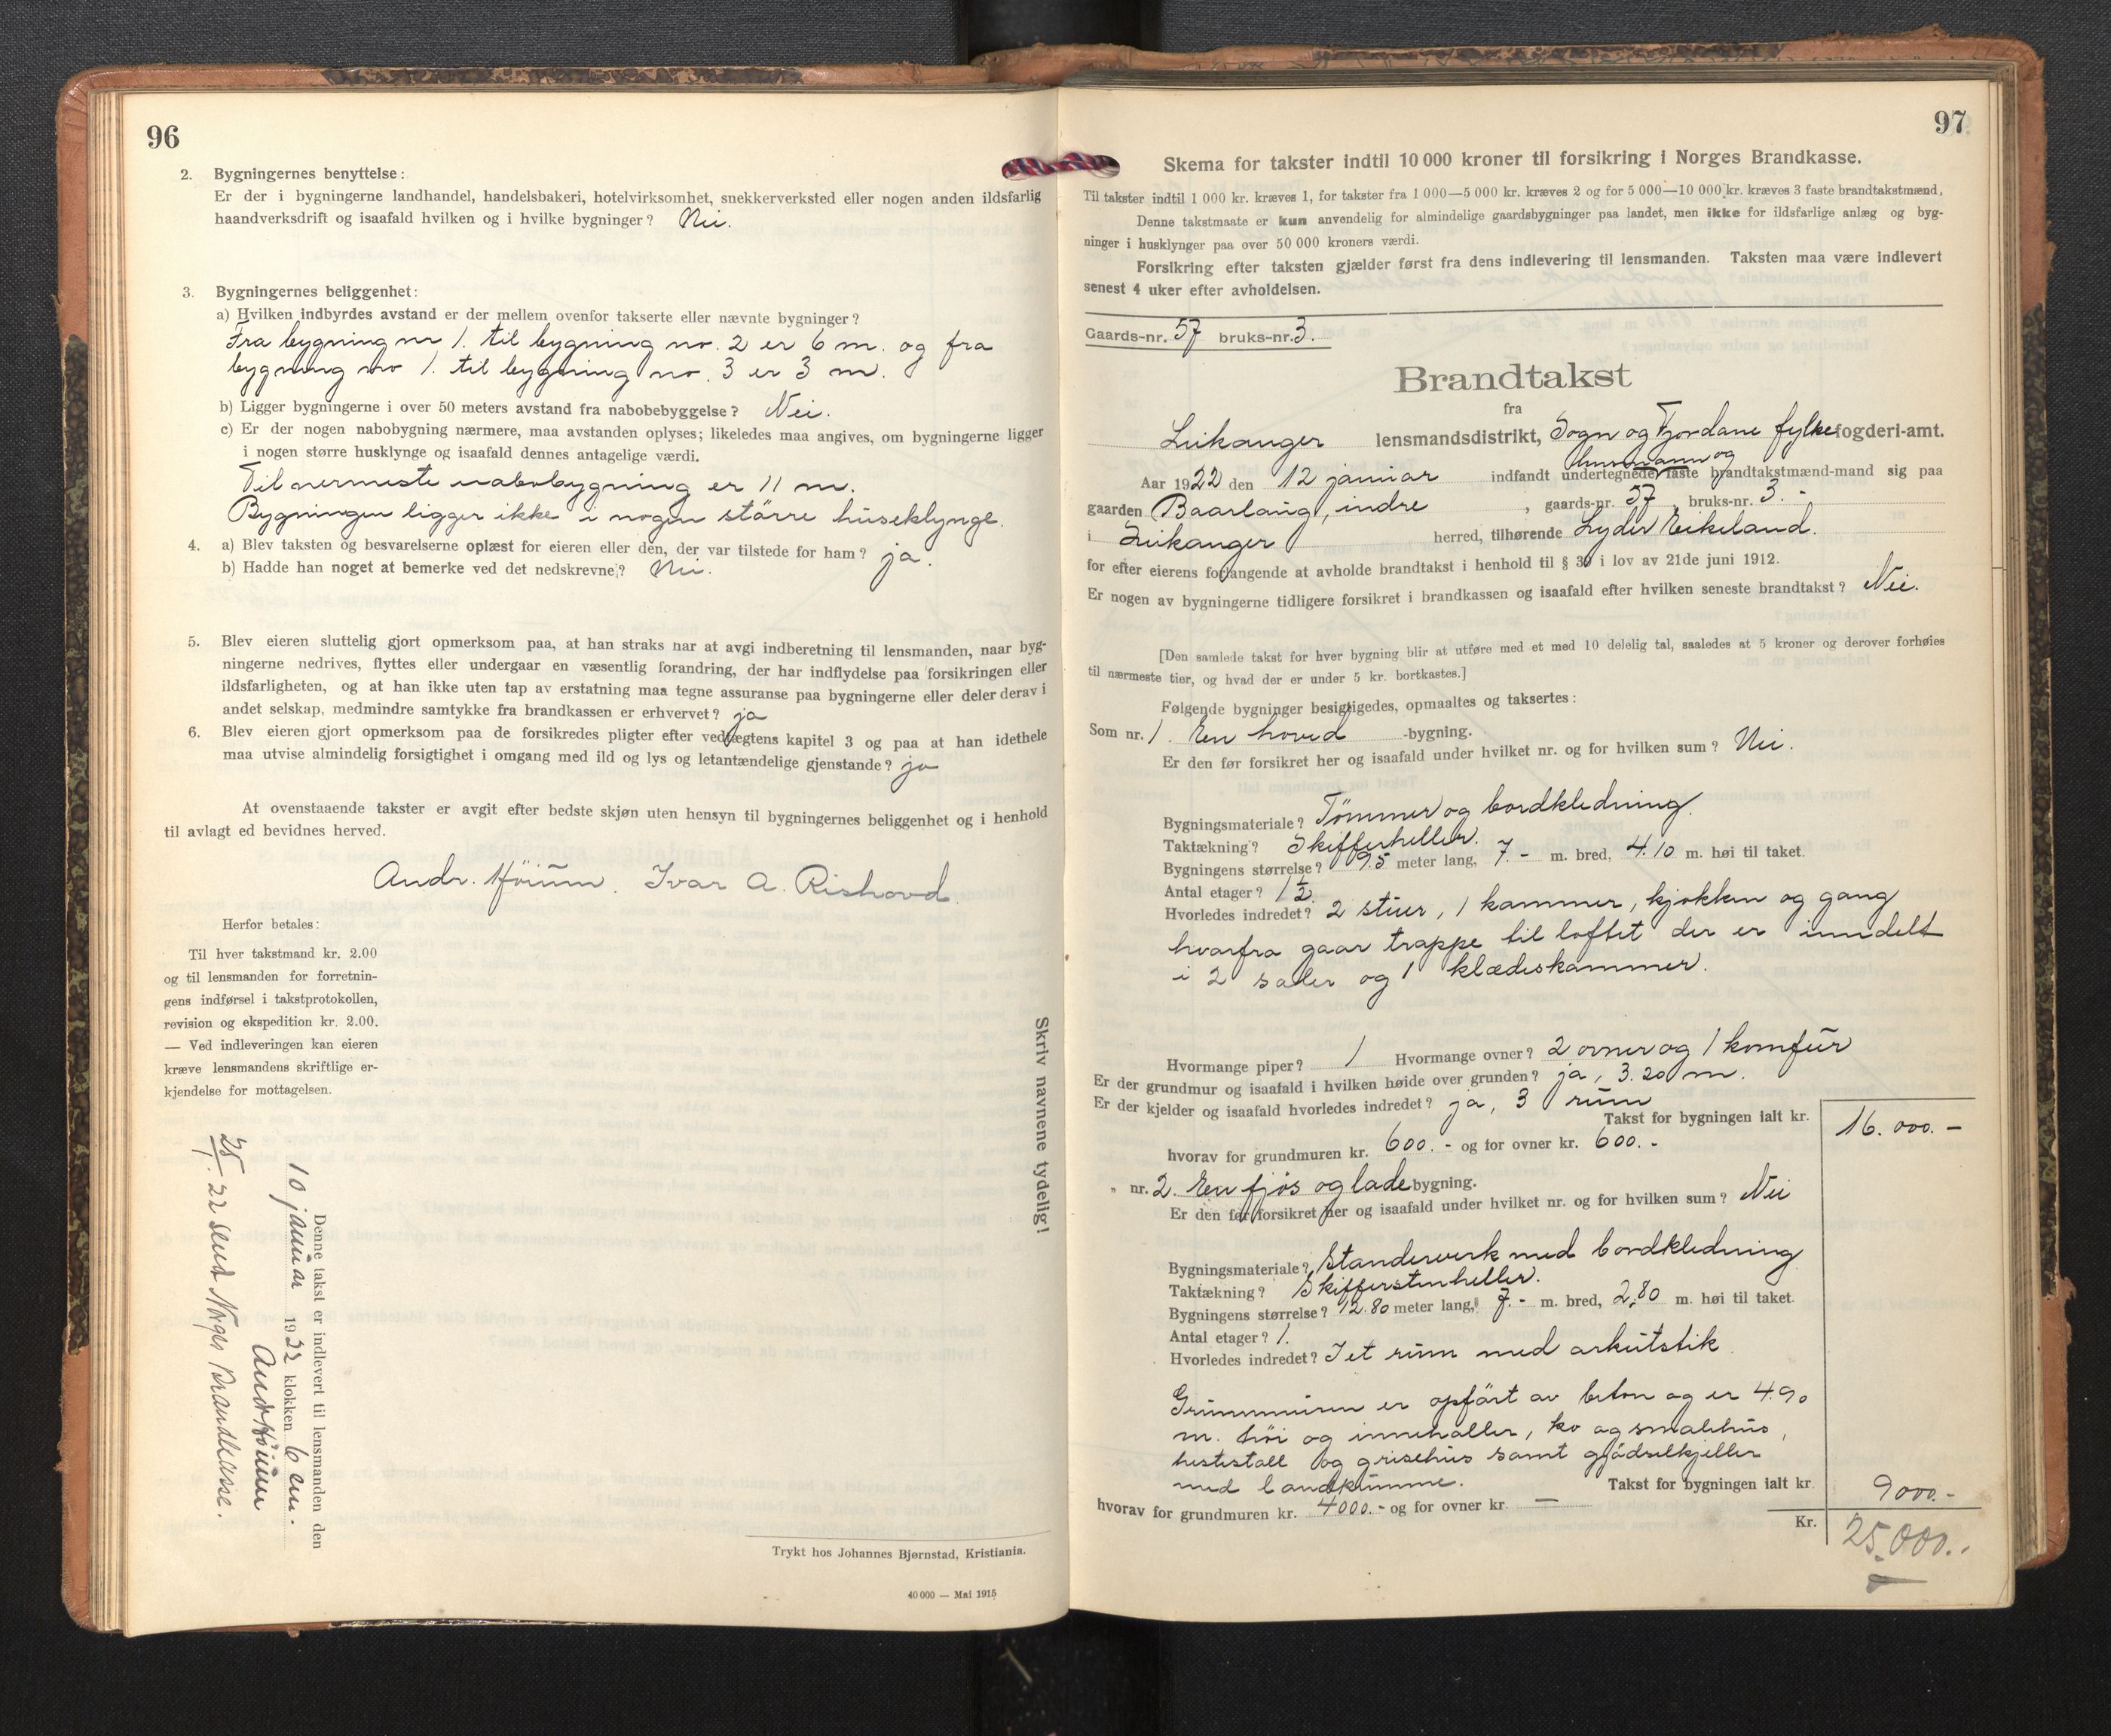 96
2. Bygningernes benyttelse:
Er der i bygningerne landhandel, handelsbakeri, hotelvirksomhet, snekkerverksted eller nogen anden ildsfarlig
haandverksdrift og isaafald hvilken og i hvilke bygninger? Nei.
3. Bygningernes beliggenhet:
a) Hvilken indbyrdes avstand er der mellem ovenfor takserte eller nævnte bygninger?
Fra bygning nr 1. til bygning no. 2 er 6 m. og fra
bygning no 1. til bygning no. 3 er 3 m.
b) Ligger bygningerne i over 50 meters avstand fra nabobebyggelse? Nei.
c) Er der nogen nabobygning nærmere, maa avstanden oplyses; likeledes maa angives, om bygningerne ligger
i nogen større husklynge og isaafald dennes antagelige værdi.
Til nermeste nabobygning er 11 m.
Bygningen ligger ikke i nogen större huseklynge.
4. a) Blev taksten og besvarelserne oplæst for eieren eller den, der var tilstede for ham? ja.
b) Hadde han noget at bemerke ved det nedskrevne? Nei.
5. Blev eieren sluttelig gjort opmerksom paa, at han straks har at avgi indberetning til lensmanden, naar byg-
ningerne nedrives, flyttes eller undergaar en væsentlig forandring, der har indflydelse paa forsikringen eller
ildsfarligheten, og at han ikke uten tap av erstatning maa tegne assuranse paa bygningerne eller deler derav i
andet selskap, medmindre samtykke fra brandkassen er erhvervet? ja
6. Blev eieren gjort opmerksom paa de forsikredes pligter efter vedtægtens kapitel 3 og paa at han idethele
maa utvise almindelig forsigtighet i omgang med ild og lys og letantændelige gjenstande? ja
At ovenstaaende takster er avgit efter bedste skjøn uten hensyn til bygningernes beliggenhet og i henhold
til avlagt ed bevidnes herved.
Andr. Höium. Ivar A. Rishovd.
Herfor betales:
Til hver takstmand kr. 2.00
og til lensmanden for forretnin-
gens indførsel i takstprotokollen,
revision og ekspedition kr. 2.00.
— Ved indleveringen kan eieren
kræve lensmandens skriftlige er-
kjendelse for mottagelsen.
Skriv navnene tydelig!
Denne takst er indlevert til lensmanden den
10 januar 1922 klokken 6 em.
And Höium
25/1. 22 sendt Norges Brandkasse.
Trykt hos Johannes Bjørnstad, Kristiania.
40 000 — Mai 1915
97
Skema for takster indtil 10 000 kroner til forsikring i Norges Brandkasse.
Til takster indtil 1 000 kr. kræves 1, for takster fra 1 000—5 000 kr. kræves 2 og for 5 000—10 000 kr. kræves 3 faste brandtakstmænd,
Denne takstmaate er kun anvendelig for almindelige gaardsbygninger paa landet, men ikke for ildsfarlige anlæg og byg-
ninger i husklynger paa over 50 000 kroners værdi.
Forsikring efter taksten gjælder først fra dens indlevering til lensmanden. Taksten maa være indlevert
senest 4 uker efter avholdelsen.
Gaards-nr. 57 bruks-nr. 3.
Brandtakst
fra
Leikanger lensmandsdistrikt, Sogn og Fjordane fylke fogderi-amt.
lensmann og
Aar 1922 den 12 januar indfandt undertegnede faste brandtakstmænd-mand sig paa
gaarden Baarlaug, indre, gaards-nr. 57, bruks-nr. 3. -
i Leikanger herred, tilhørende Lyder Eikeland.
for efter eierens forlangende at avholde brandtakst i henhold til § 30 i lov av 21de juni 1912.
Er nogen av bygningerne tidligere forsikret i brandkassen og isaafald efter hvilken seneste brandtakst? Nei.
[Den samlede takst for hver bygning blir at utføre med et med 10 delelig tal, saaledes at 5 kroner og derover forhøies
til nærmeste tier, og hvad der er under 5 kr. bortkastes.]
Følgende bygninger besigtigedes, opmaaltes og taksertes:
Som nr. 1. En hoved -bygning.
Er den før forsikret her og isaafald under hvilket nr. og for hvilken sum? Nei.
Bygningsmateriale? Tømmer og bordkledning.
Taktækning? Skifferheller.
Bygningens størrelse? 9.5 meter lang, 7.- m. bred, 4.10 m. høi til taket.
Antal etager? 1 1/2.
Hvorledes indredet? 2 stuer, 1 kammer, kjøkken og gang
hvorfra gaar trappe til loftet der er inndelt
i 2 saler og 1 klædeskammer.
Hvormange piper? 1 Hvormange ovner? 2 ovner og 1 komfur
Er der grundmur og isaafald i hvilken høide over grunden? ja, 3.20 m.
Er der kjelder og isaafald hvorledes indredet? ja, 3 rum
Takst for bygningen ialt kr. 16.000.-
hvorav for grundmuren kr. 600.- og for ovner kr. 600.-
„ nr. 2. En fjös og lade bygning.
Er den før forsikret her og isaafald under hvilket nr. og for hvilken sum? Nei
Bygningsmateriale? Standerverk med bordkledning
Taktækning? Skifferstenheller.
Bygningens størrelse? 12.80 meter lang, 7.- m. bred, 2.80 m. høi til taket.
Antal etager? 1.
Hvorledes indredet? I et rum med arkutstik
Grunnmuren er opført av beton og er 4.90
m. höi og inneholler, ko og smalehus,
hestestall og grisehus samt gjödselkjeller
med landkumme. Takst for bygningen ialt kr. 9000.-
hvorav for grundmuren kr. 4000.- og for ovner kr. —
Kr. 25.000.-